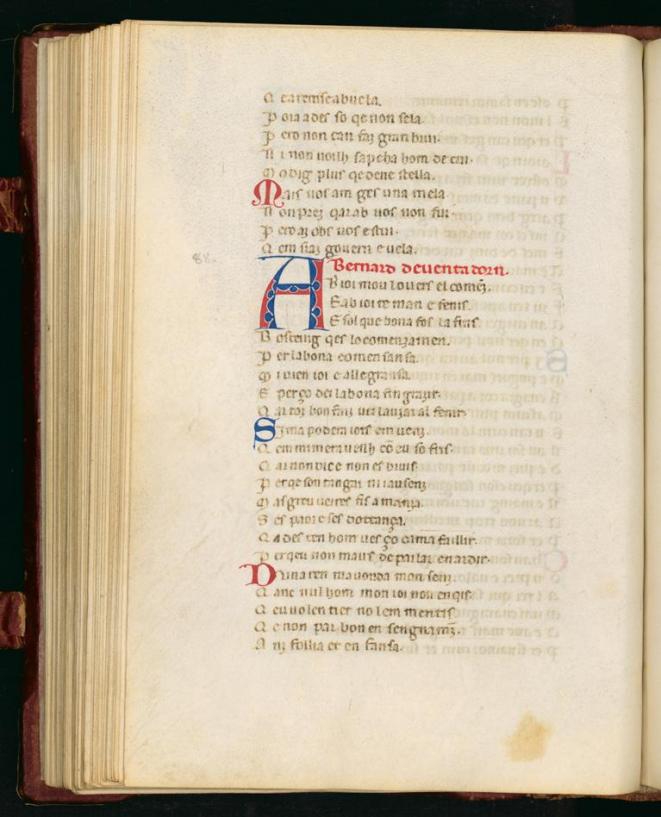 Q ea remseabuela.
P oia ades so qe non sela.
P ero non can faz gran brui.
N i non uoilh sapcha hom de cui.
M o dig plus qe dene stella.
Mais uos am ges una mela
N on prez qar ab uos non sui.
P ero az obs uos estui.
Q em siaz gouern e uela.
Bernard deuentadorn.
AB ioi mou lo uers el comēz.
E ab ioi reman e fenis.
E sol que bona fos la fins.
B os teing qes lo comenzamen.
P er la bona comensansa.
M i uen ioi e allegransa.
E per ço dei la bona fin grazir.
Q ar toz bon faiz uei lauzar al fenir.
Si ma podera iois em uenz.
Q em merauelh cō eu so fris.
Q ar non dic e non es bruis.
P er qe son tan gai ni iauzenz
M as greu ueires fis amanza.
S es paor e ses dottança.
Q ades ten hom ues ço cama faillir.
P erqeu non maus de parlar enardir.
Duna ren ma uonda mon sen.
Q anc nul hom mon ioi nou enqis.
Q eu uolentier no len mentis
Q e non par bon ensengnamz.
A nz follia et enfansa.